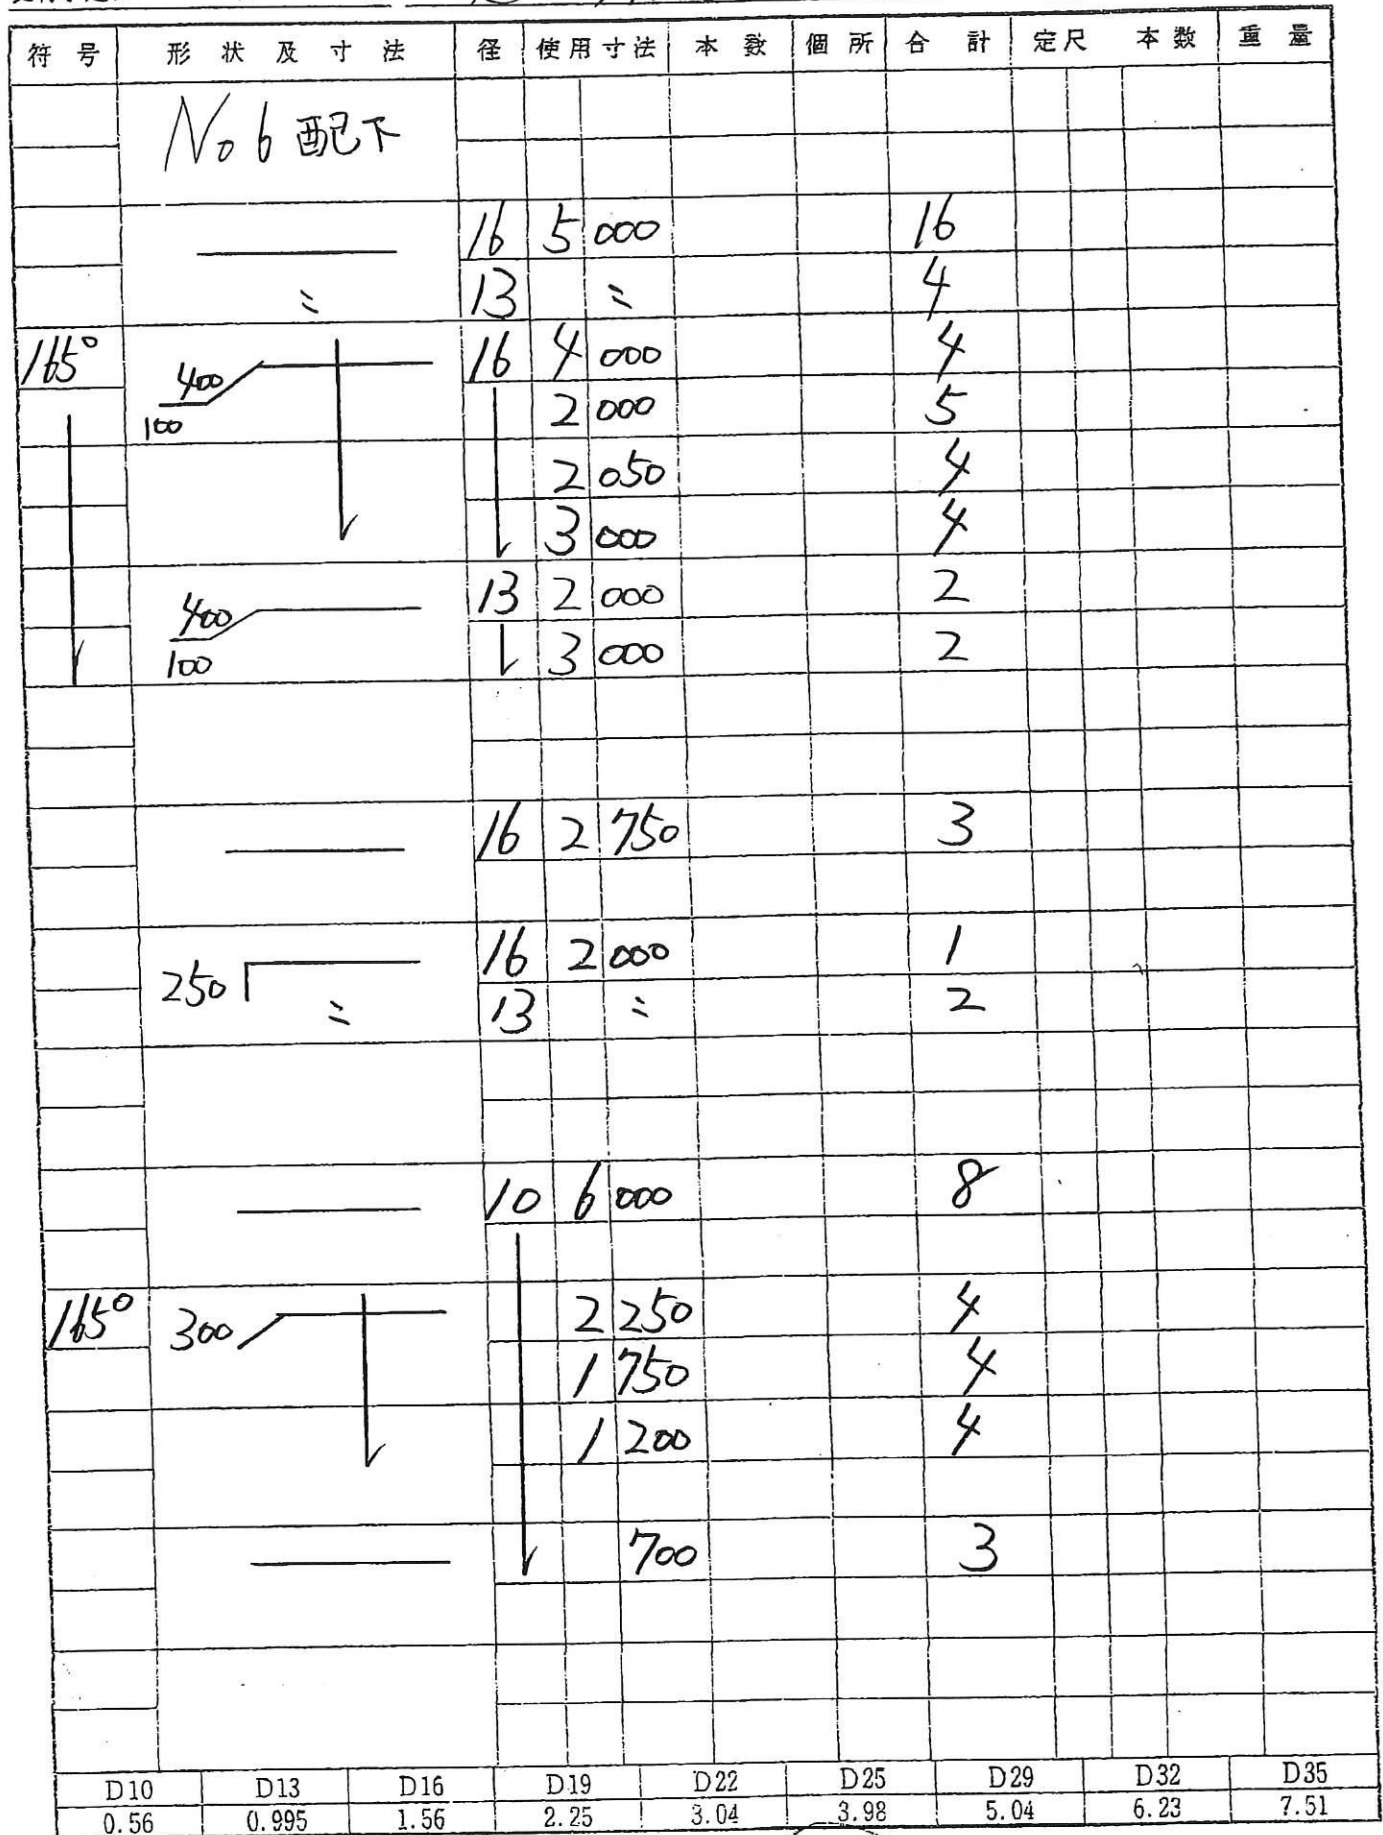 符号 形状及寸法 径 使用寸法 本数 個所 合計 定尺 本数 重量
No6 配下
16 5000 16
〃 13 〃 4
165° 400 100 16 4000 4
2000 5
2050 4
3000 4
400 100 13 2000 2
3000 2
16 2750 3
250 16 2000 1
〃 13 〃 2
10 6000 8
165° 300 2250 4
1750 4
1200 4
700 3
D10 D13 D16 D19 D22 D25 D29 D32 D35
0.56 0.995 1.56 2.25 3.04 3.98 5.04 6.23 7.51